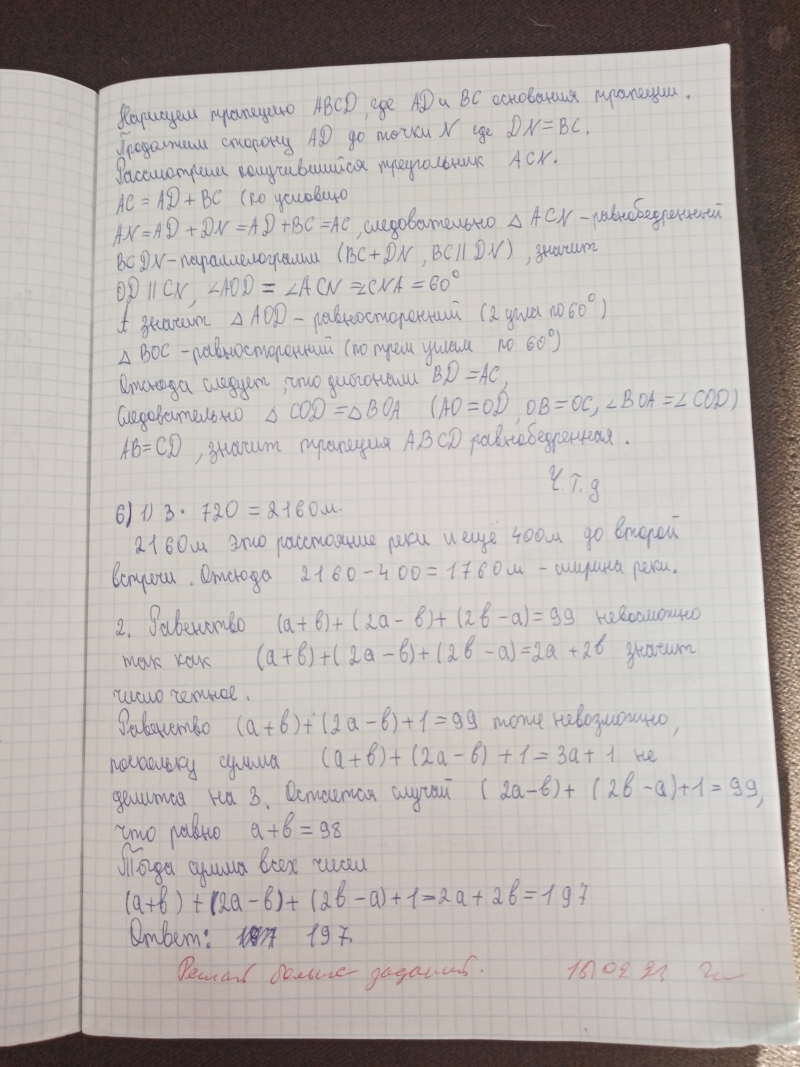 Нарисуем трапецию ABCD, где AD и BC основания трапеции.
Продолжим сторону AD до точки N где DN=BC.
Рассмотрим получившийся треугольник ACN.
AC = AD + BC (по условию
AN=AD + DN =AD +BC =AC, следовательно △ ACN -равнобедренный
BCDN-параллелограмм (BC+DN, BC || DN), значит
OD || CN, ∠AOD = ∠ACN =∠CNA = 60°
А значит △ AOD - равносторонний (2 угла по 60°)
△ BOC -равносторонний (по трем углам по 60°)
Отсюда следует, что диагонали BD =AC,
Следовательно △ COD =△ BOA (AO=OD, OB=OC, ∠BOA =∠ COD)
AB=CD, значит трапеция ABCD равнобедренная.
Ч.т.д
6) 1) 3· 720 = 2160м.
2160м это расстояние реки и ещё 400м до второй
встречи. Отсюда 2160-400=1760м - ширина реки.
2. Равенство (a+b)+(2a-b)+(2b-a)=99 невозможно
так как (a+b)+(2a-b)+(2b-a)=2a+2b значит
число четное.
Равенство (a+b)+(2a-b)+1=99 тоже невозможно,
поскольку сумма (a+b)+(2a-b)+1=3a+1 не
делится на 3. Остается случай (2a-b)+(2b-a)+1=99,
что равно a+b=98
Тогда сумма всех чисел
(a+b)+(2a-b)+(2b-a)+1=2a+2b=197
Ответ: 197
Решай больше заданий.